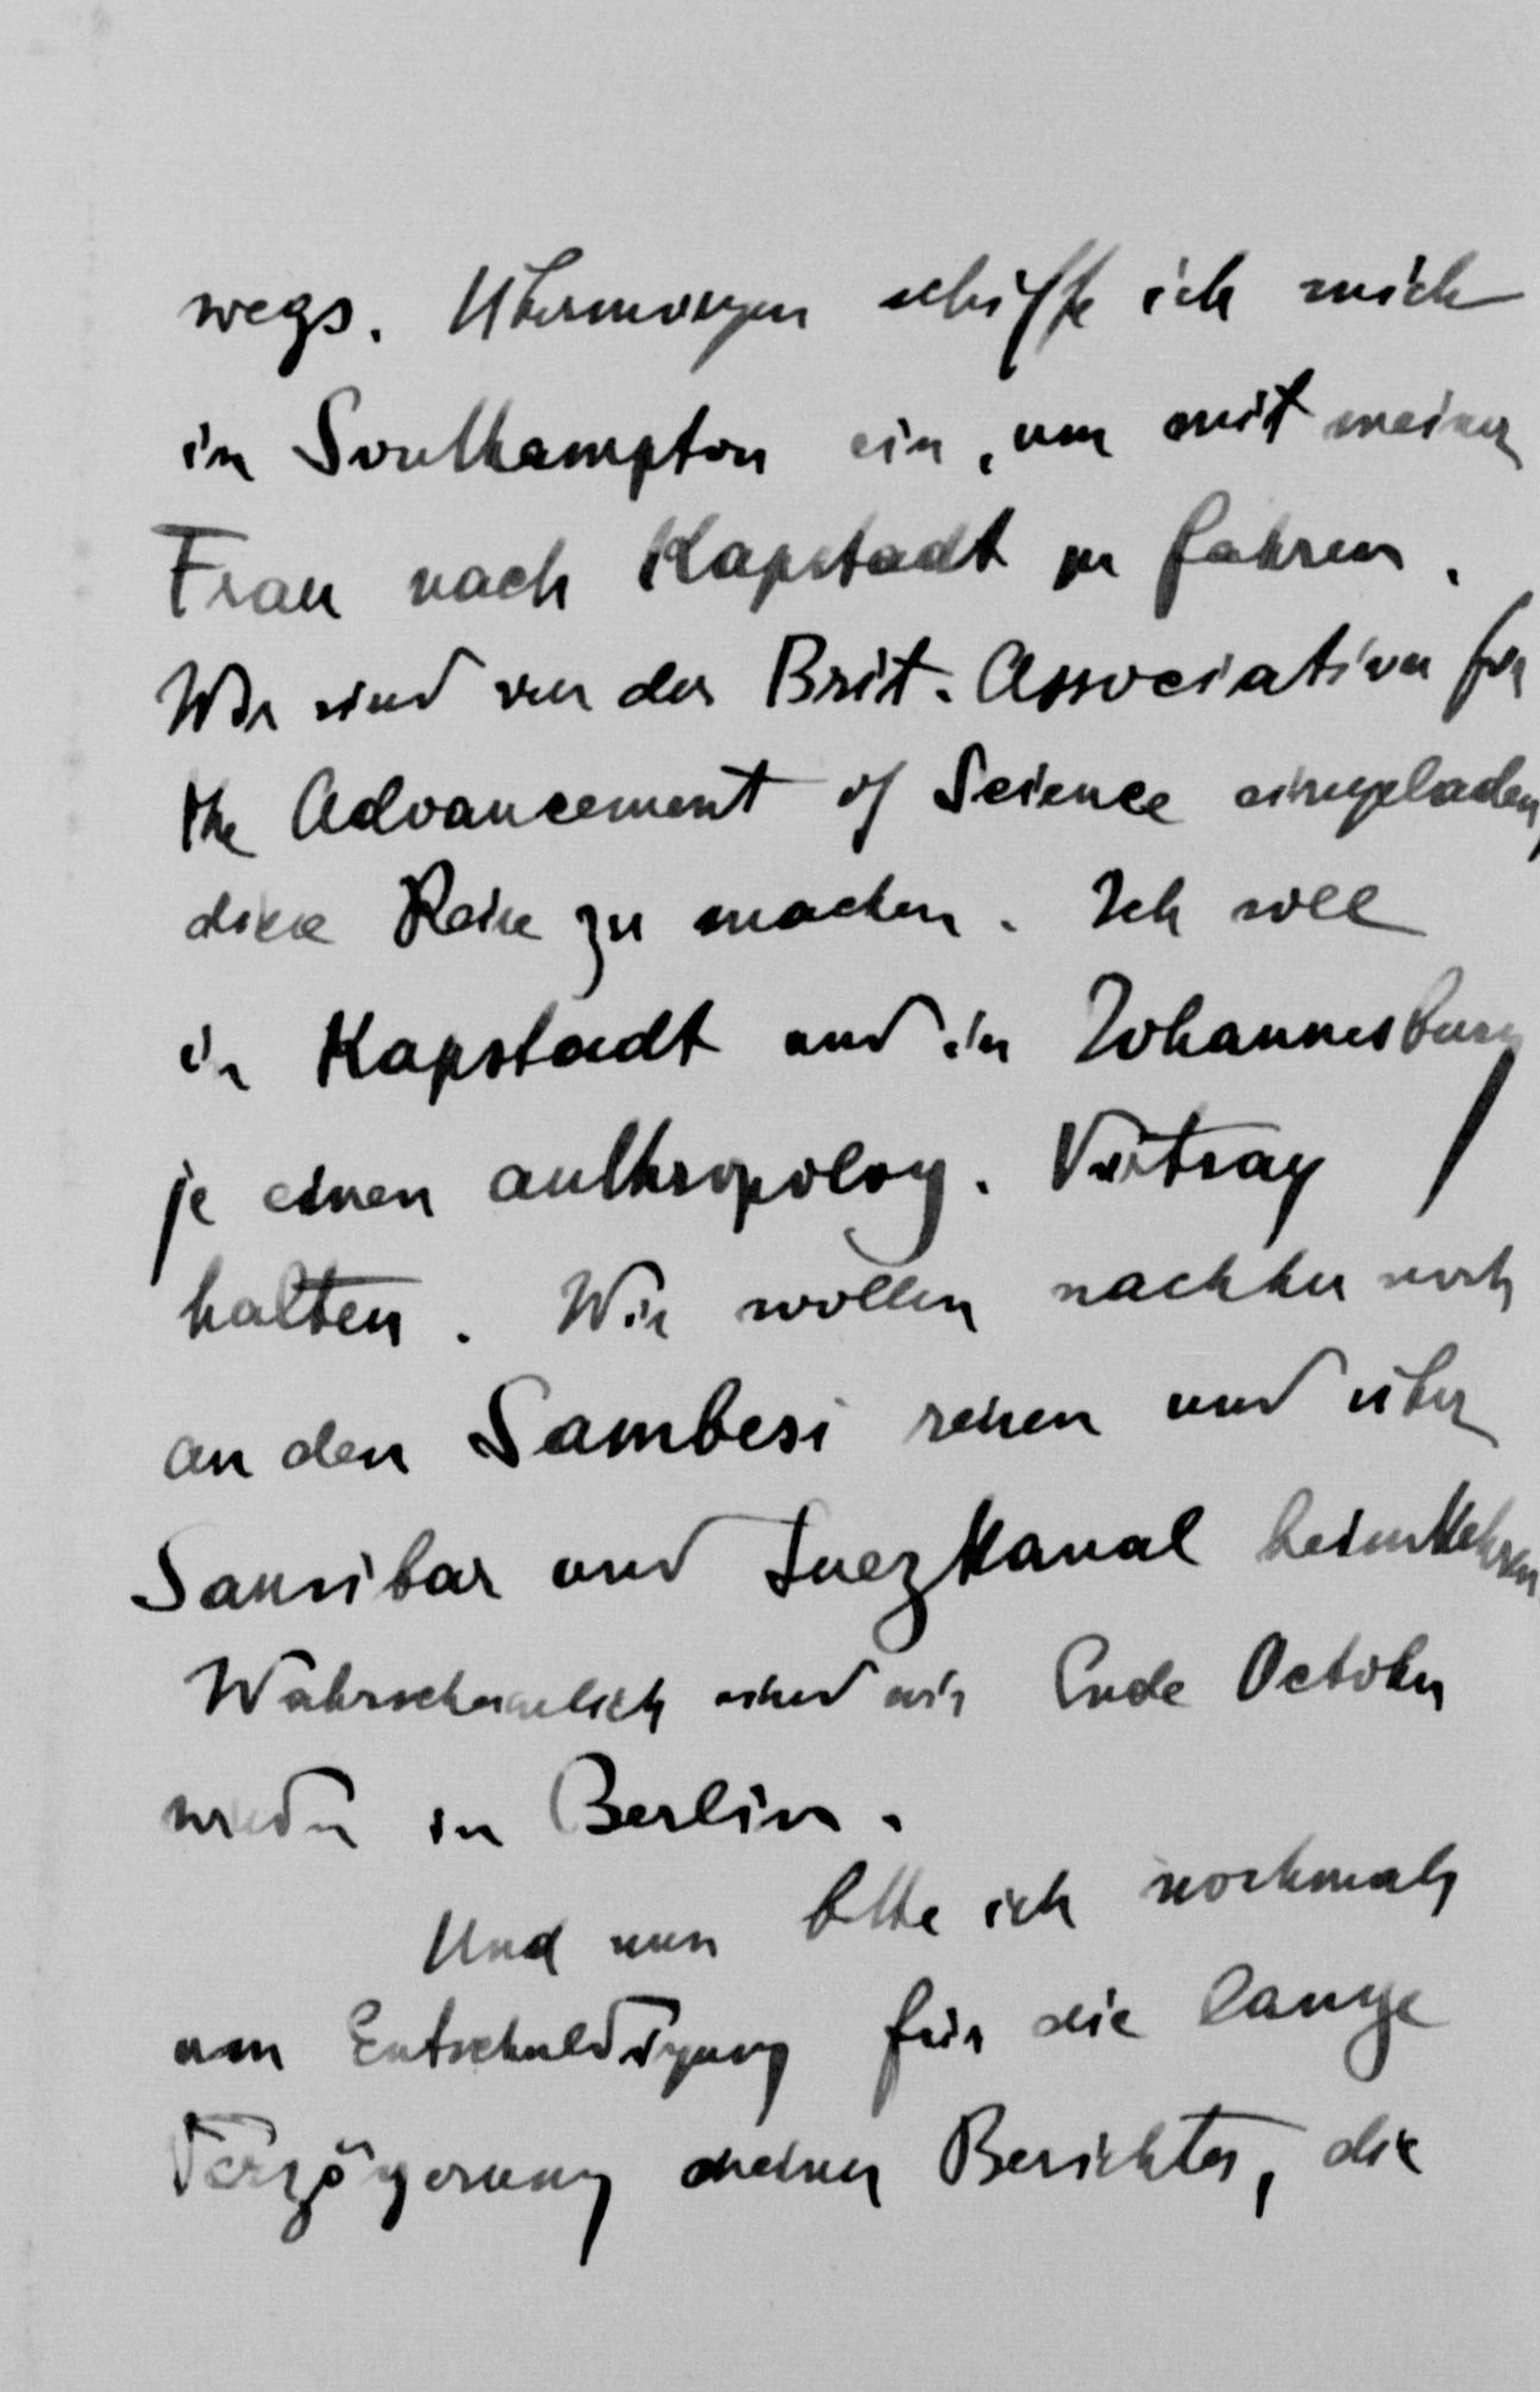 wegs. Übermorgen schiffe ich mich
in Southampton ein, um mit meiner
Frau nach Kapstadt zu fahren.
Wir sind von der Brit. Association for
the Advancement of Science eingeladen,
diese Reise zu machen. Ich soll
in Kapstadt und in Johannesburg
je einen anthropolog. Vortrag
halten. Wir wollen nachher noch
an den Sambesi reisen und über
Sansibar und Suezkanal heimkehren
Wahrscheinlich sind wir Ende October
wieder in Berlin.
Und nun bitte ich nochmals
um Entschuldigung für die lange
Verzögerung meines Berichtes, die